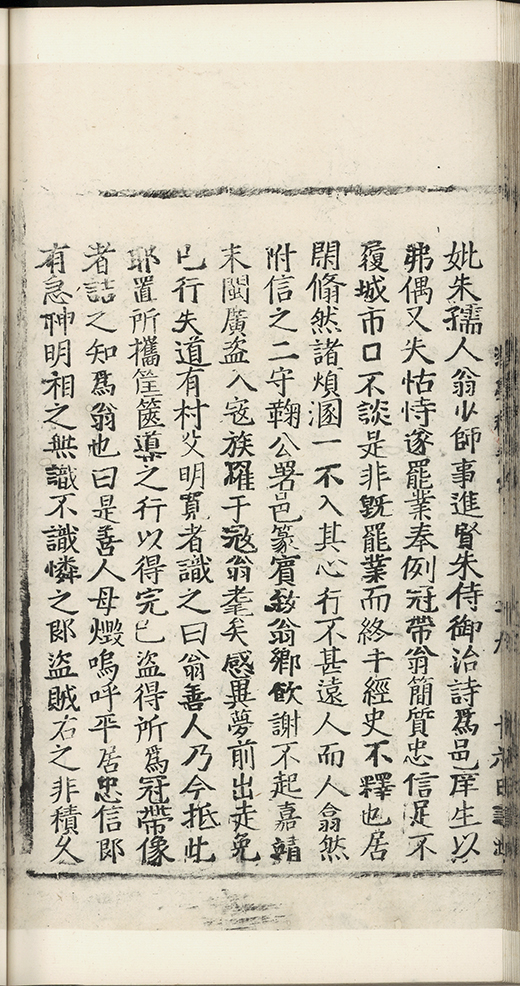 妣朱孺人翁少師事進賢朱侍御治詩爲邑庠生以
弗偶又失怙恃遂罷業奉例冠帶翁簡質忠信足不
履城市口不談是非既罷業而終手經史不釋也居
閑翛然諸煩溷一不入其心行不甚遠人而人翕然
附信之二守鞠公署邑篆賓致翁鄉飲謝不起嘉靖
末閩廣盜入寇族罹于寇翁耄矣感異夢前出走免
已行失道有村父明覓者識之曰翁善人乃今抵此
耶置所攜筐篋導之行以得完已盜得所爲冠帶像
者詰之知爲翁也曰是善人母燬嗚呼平居忠信郎
有急神明相之無識不識憐之郎盜賊右之非積久